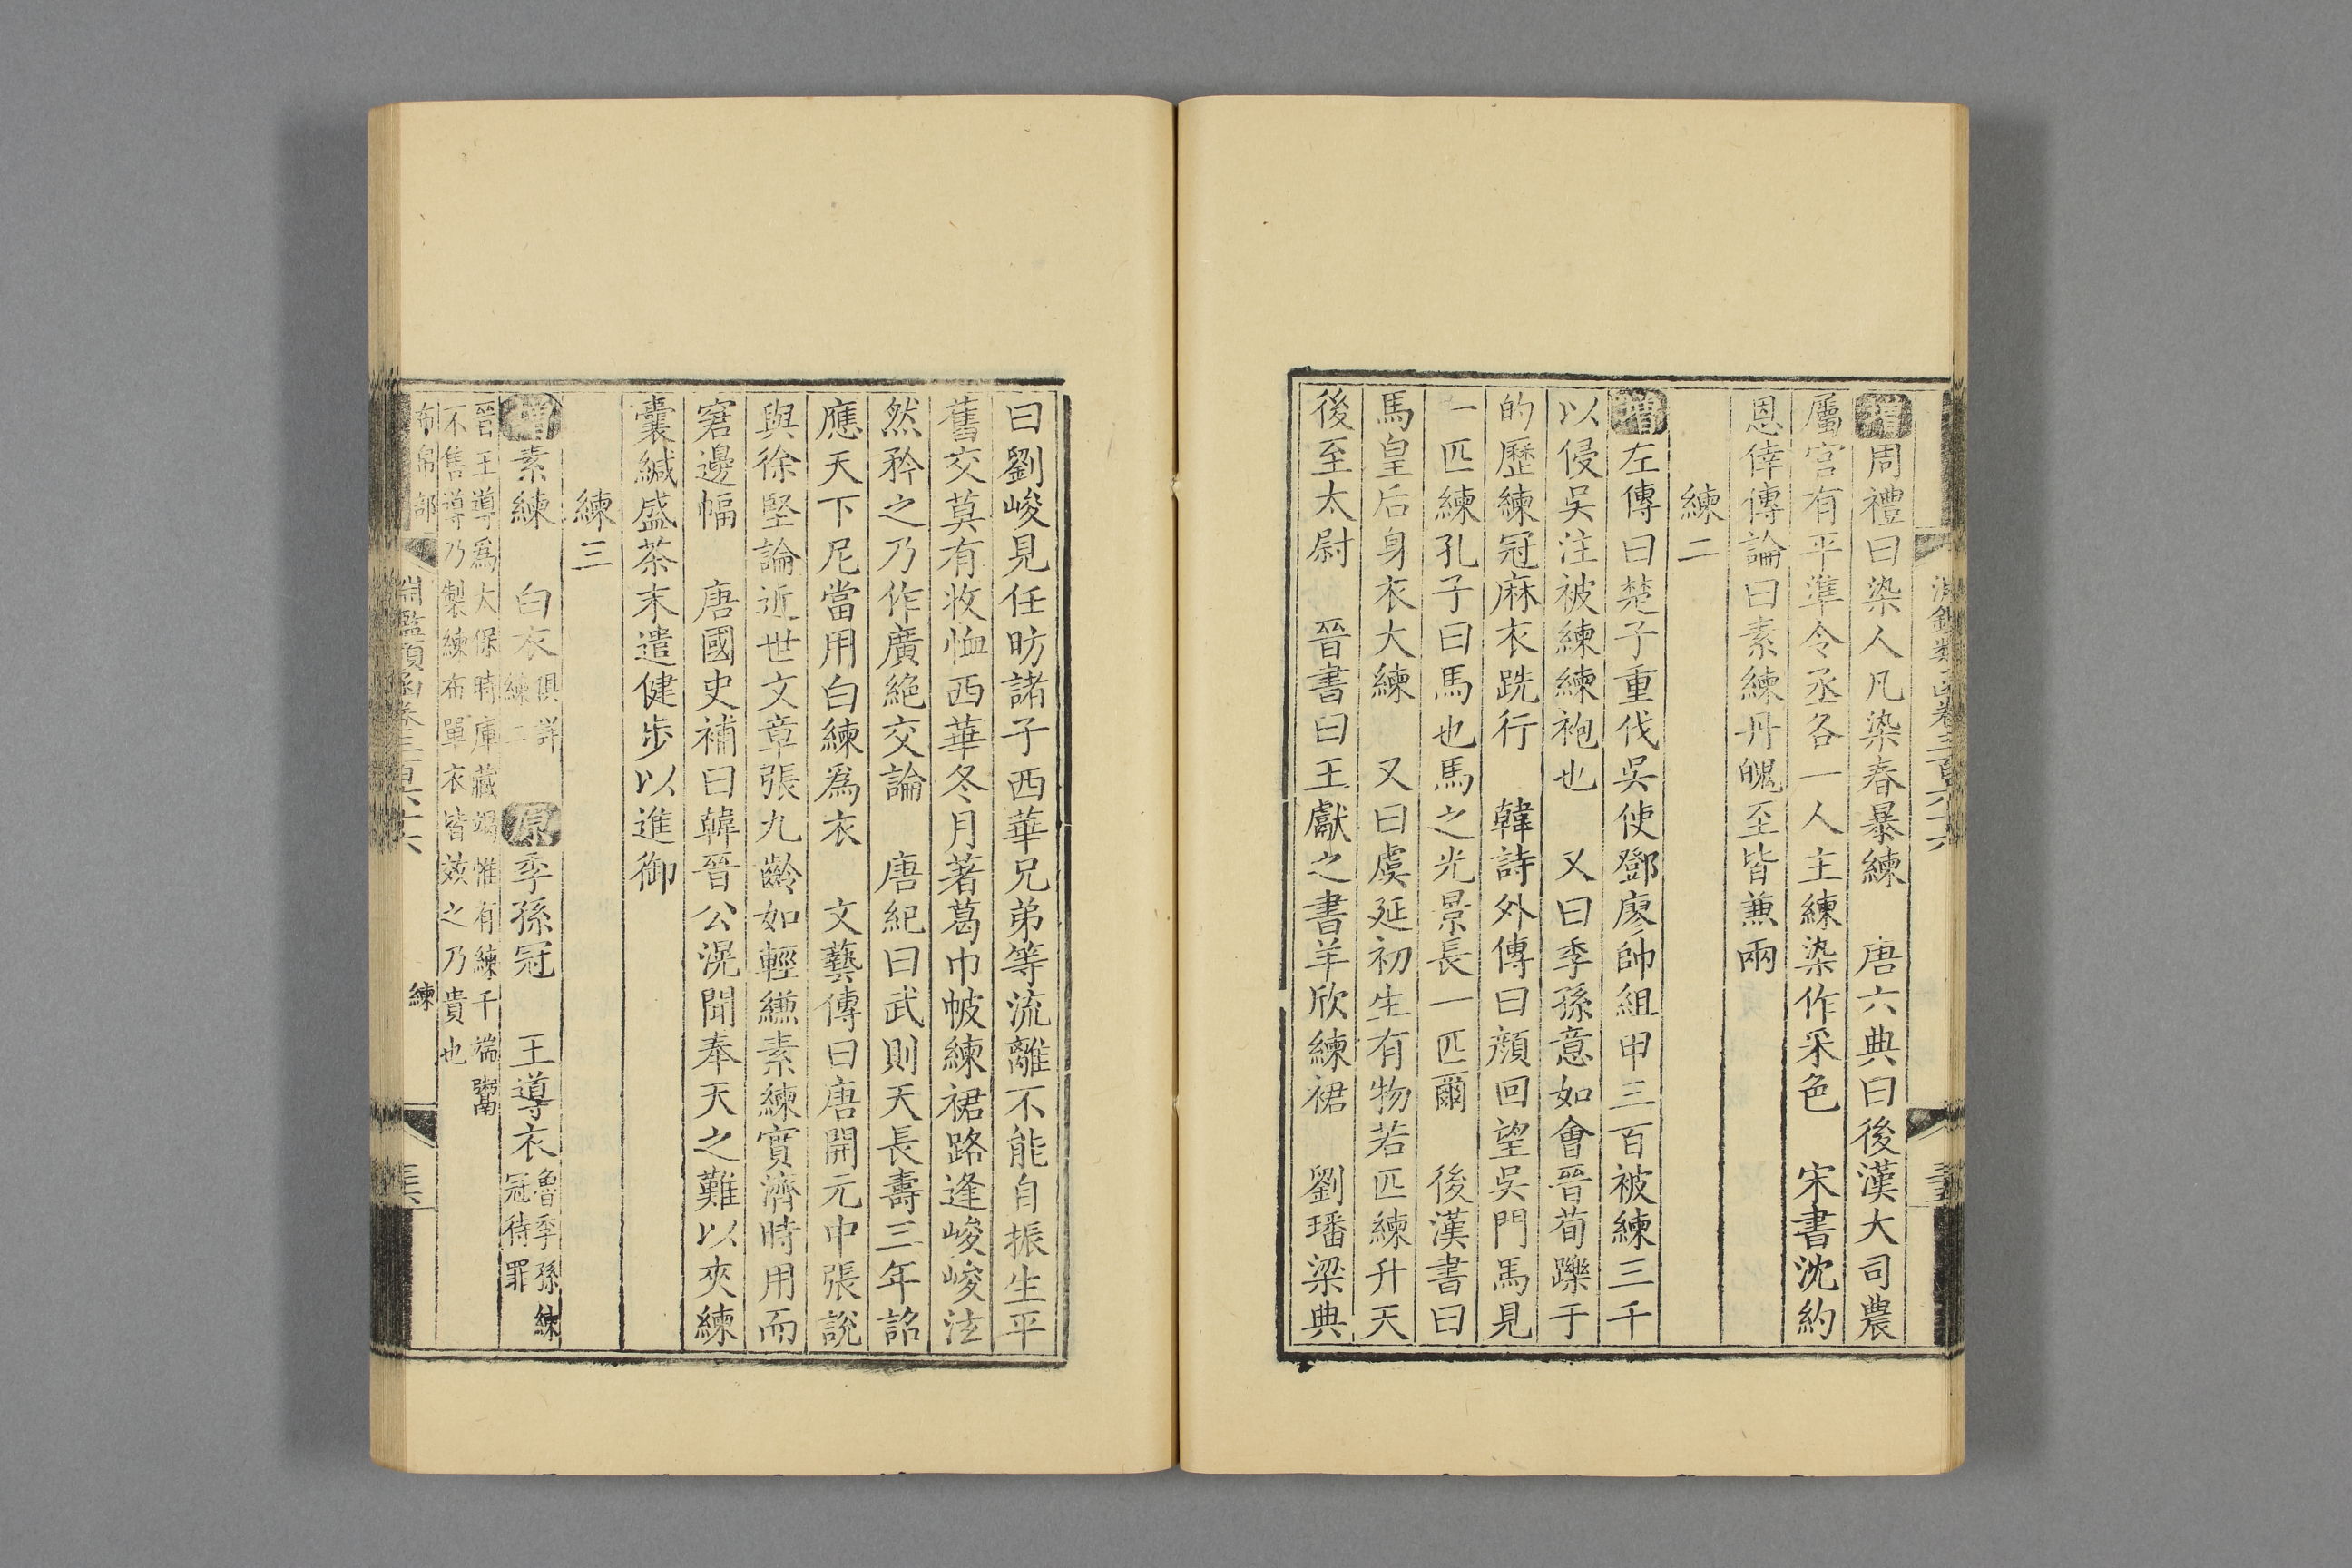 增周禮曰染人凡染春暴練　唐六典曰後漢大司農
屬官有平準令丞各一人主練染作采色　宋書沈約
恩倖傳論曰素練丹魄至皆兼兩
練二
增左傳曰楚子重伐吳使鄧廖帥組甲三百被練三千
以侵吳注被練練袍也　又曰季孫意如會晉荀躒于
的歷練冠麻衣跣行　韓詩外傳曰顏回望吳門馬見
一匹練孔子曰馬也馬之光景長一匹爾　後漢書曰
馬皇后身衣大練　又曰虞延初生有物若匹練升天
後至太尉　晉書曰王獻之書羊欣練裙　劉璠梁典
曰劉峻見任昉諸子西華兄弟等流離不能自振生平
舊交莫有收恤西華冬月著葛巾帔練裙路逢峻峻泫
然矜之乃作廣絕交論　唐紀曰武則天長壽三年詔
應天下尼當用白練爲衣　文藝傳曰唐開元中張說
與徐堅論近世文章張九齡如輕縑素練實濟時用而
窘邊幅　唐國史補曰韓晉公滉聞奉天之難以夾練
囊緘盛茶末遣健步以進御
練三
增素練　白衣俱詳練二　原季孫冠　王導衣魯季孫練冠待罪
晉王導爲太保時庫藏竭惟有練千端鬻
不售導乃製練布單衣皆效之乃貴也
布帛部　淵鑑類函卷三百六十六　練